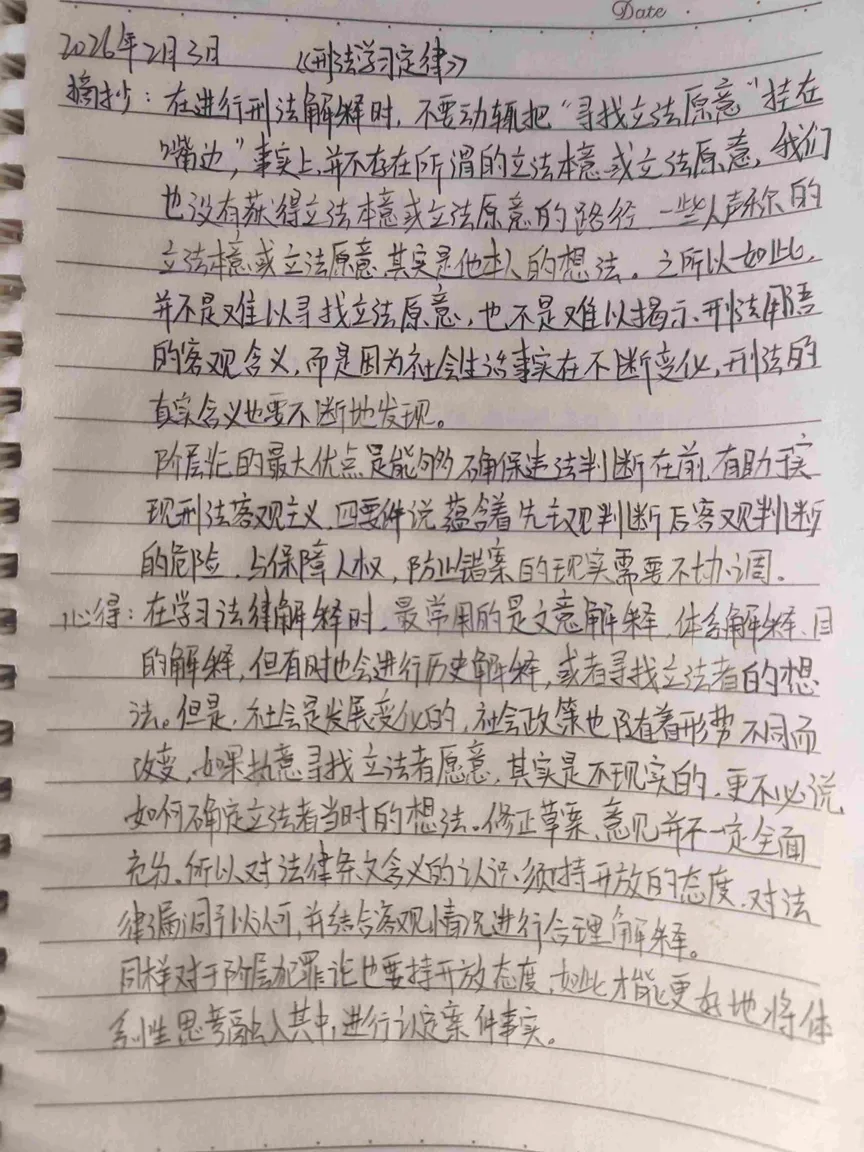 Date
2026年2月3日 《刑法学习定律》
摘抄：在进行刑法解释时，不要动辄把“寻找立法原意”挂在
“嘴边”，事实上，并不存在所谓的立法本意或立法原意，我们
也没有获得立法本意或立法原意的路径，一些人声称的
立法本意或立法原意，其实是他本人的想法。之所以如此，
并不是难以寻找立法原意，也不是难以揭示刑法用语
的客观含义，而是因为社会生活事实在不断变化，刑法的
真实含义也要不断地发现。
阶层论的最大优点是能够确保违法判断在前，有助于实
现刑法客观主义，四要件说蕴含着先主观判断后客观判断
的危险，与保障人权，防止错案的现实需要不协调。
心得：在学习法律解释时，最常用的是文意解释、体系解释、目
的解释，但有时也会进行历史解释，或者寻找立法者的想
法。但是，社会是发展变化的，社会政策也随着形势不同而
改变，如果执意寻找立法者愿意，其实是不现实的，更不必说
如何确定立法者当时的想法。修正草案、意见并不一定全面
充分。所以，对法律条文含义的认识，须持开放的态度，对法
律漏洞予以认可，并结合客观情况进行合理解释。
同样对于阶层犯罪论也要持开放态度，如此才能更好地将体
系性思考融入其中，进行认定案件事实。